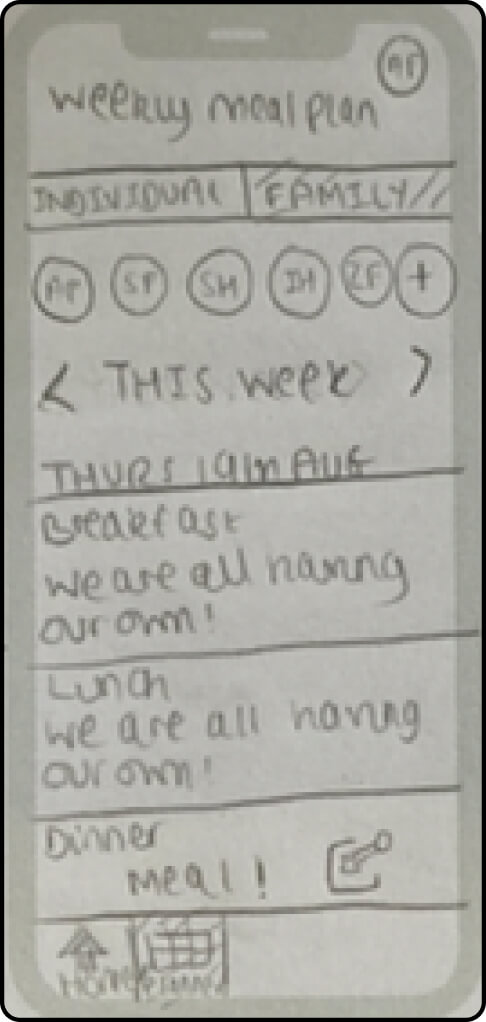 AP
Weekly meal plan
INDIVIDUAL FAMILY
AP SP SH IH ZF +
< THIS week >
THURS 19th AUG
Breakfast
we are all having
our own!
Lunch
we are all having
our own!
Dinner
Meal!
HOME